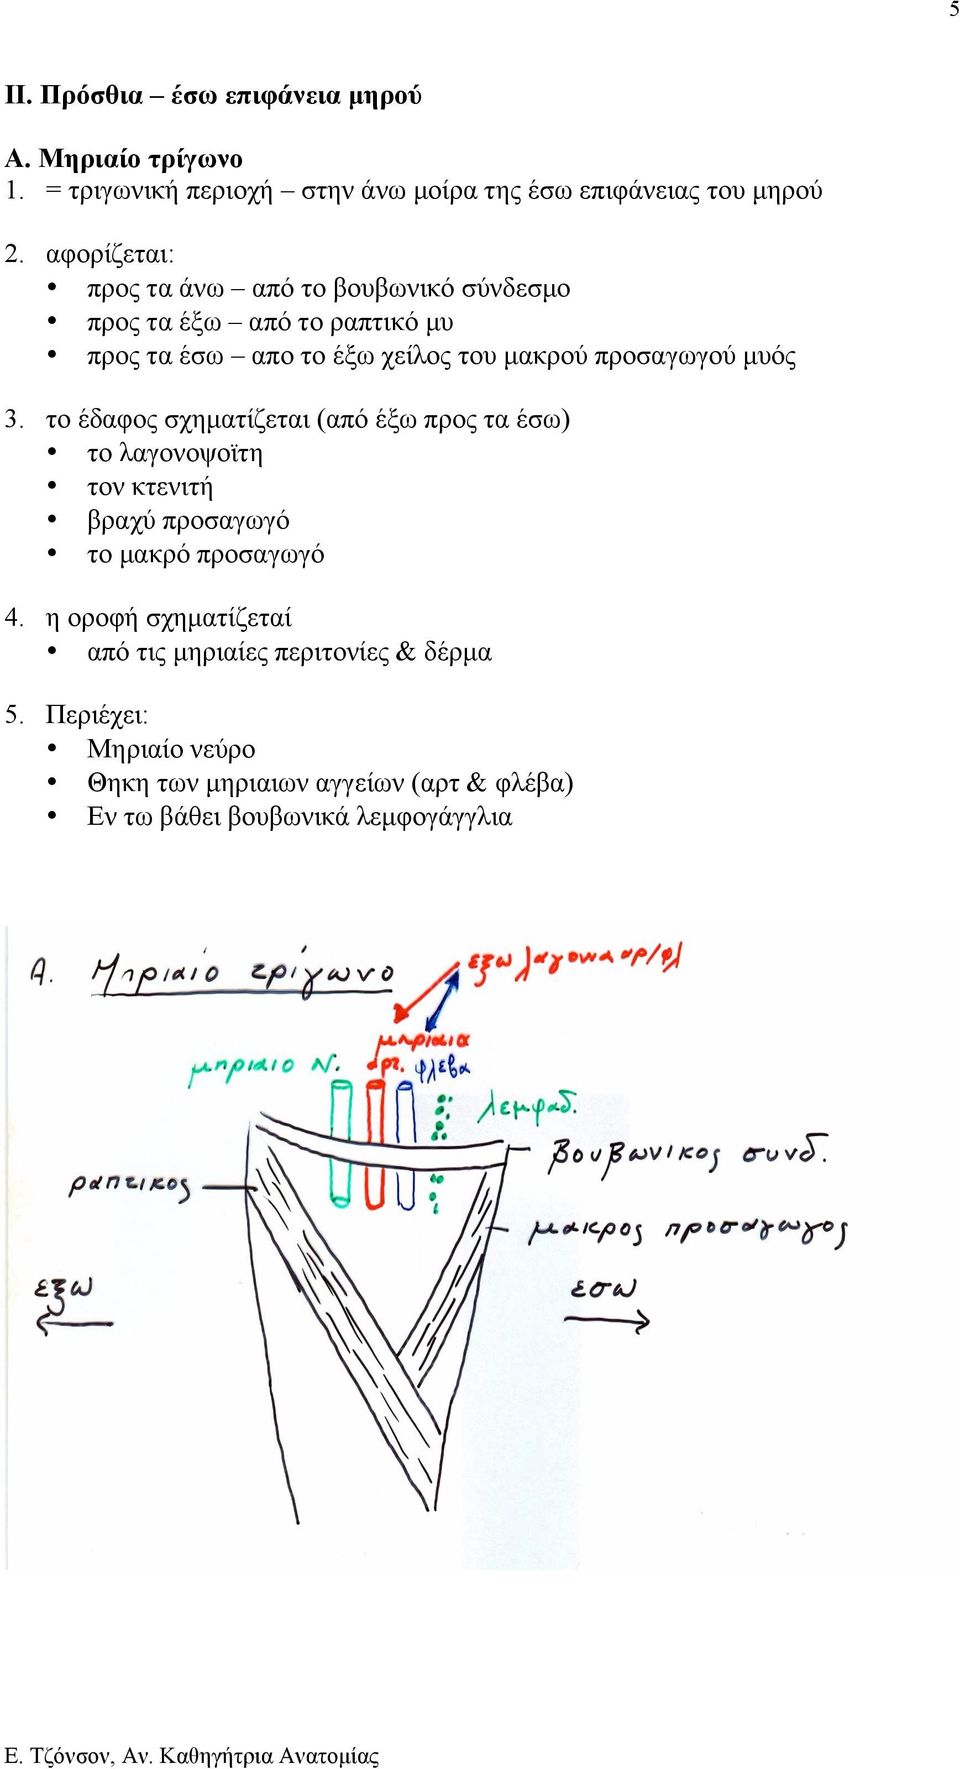 5
II. Πρόσθια – έσω επιφάνεια μηρού
Α. Μηριαίο τρίγωνο
1. = τριγωνική περιοχή – στην άνω μοίρα της έσω επιφάνειας του μηρού
2. αφορίζεται:
• προς τα άνω – από το βουβωνικό σύνδεσμο
• προς τα έξω – από το ραπτικό μυ
• προς τα έσω – απο το έξω χείλος του μακρού προσαγωγού μυός
3. το έδαφος σχηματίζεται (από έξω προς τα έσω)
• το λαγονοψοϊτη
• τον κτενιτή
• βραχύ προσαγωγό
• το μακρό προσαγωγό
4. η οροφή σχηματίζεταί
• από τις μηριαίες περιτονίες & δέρμα
5. Περιέχει:
• Μηριαίο νεύρο
• Θηκη των μηριαιων αγγείων (αρτ & φλέβα)
• Εν τω βάθει βουβωνικά λεμφογάγγλια
Α. Μηριαίο τρίγωνο
εξω λαγονια αρ/φλ
μηριαια
μηριαιο Ν. αρτ. φλεβα
λεμφαδ.
βουβωνικος συνδ.
ραπτικος
μακρος προσαγωγος
εξω
εσω
Ε. Τζόνσον, Αν. Καθηγήτρια Ανατομίας